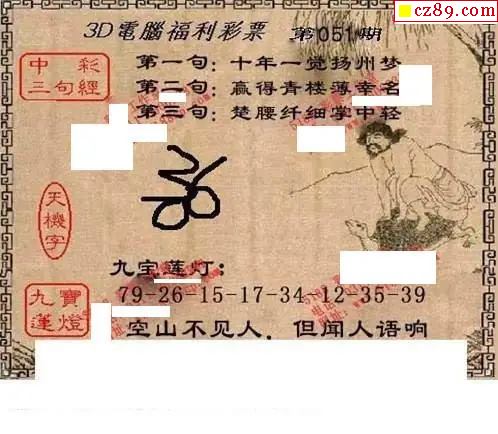 cz89.com
3D電腦福利彩票 第051期
中彩三句經
第一句：十年一觉扬州梦
第二句：赢得青楼薄幸名
第三句：楚腰纤细掌中轻
天機字
九宝莲灯：
九寶蓮燈
79-26-15-17-34-12-35-39
空山不见人，但闻人语响